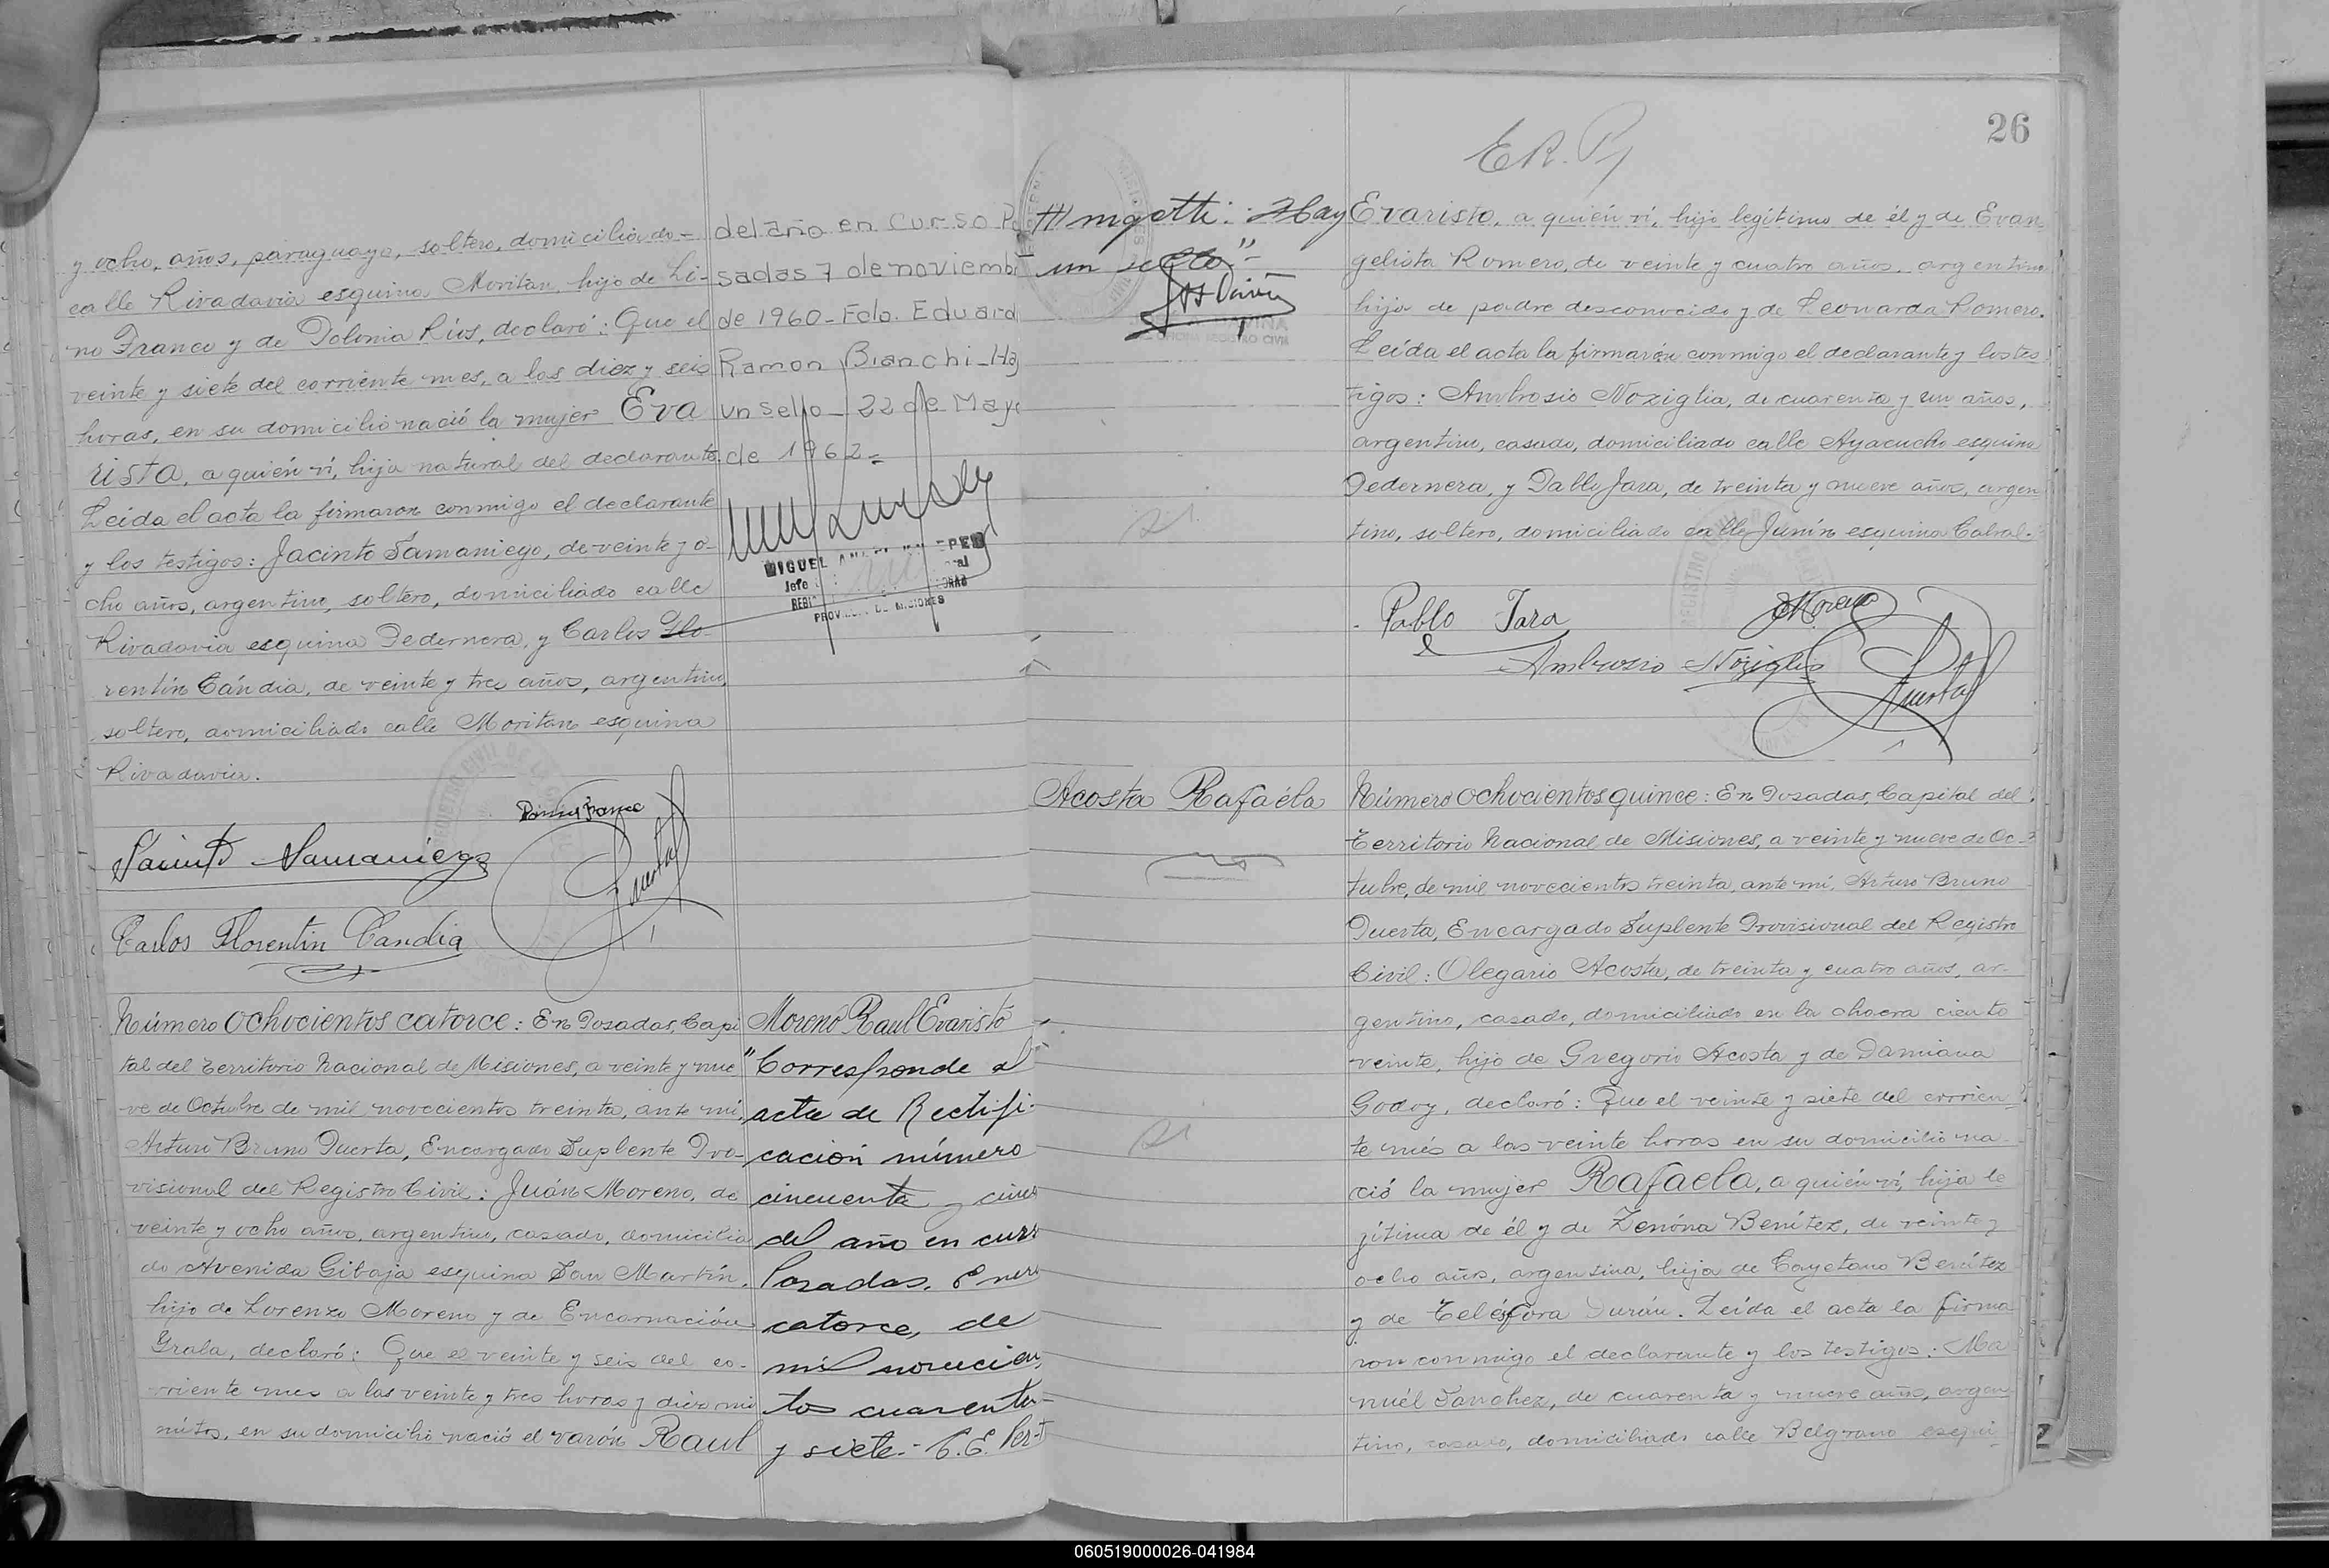 y ocho, años, paraguayo, soltero, domiciliado-
calle Rivadavia esquina Moritán, hijo de Li-
no Franco y de Polonia Ríos, declaró: Que el
veinte y siete del corriente mes, a las diez y seis
horas, en su domicilio nació la mujer Eva
rista, a quién ví, hija natural del declarante.
Leída el acta la firmaron conmigo el declarante
y los testigos: Jacinto Samaniego, de veinte y o-
cho años, argentino, soltero, domiciliado calle
Rivadavia esquina Pedernera, y Carlos Flo-
rentín Cándia, de veinte y tres años, argentino,
soltero, domiciliado calle Moritan esquina
Rivadavia.
Franco
Jacinto Samaniego
Puerta
Carlos Florentin Candia
Número ochocientos catorce: En Posadas, Capi
tal del Territorio Nacional de Misiones, a veinte y nue
ve de Octubre de mil novecientos treinta, ante mí,
Arturo Bruno Puerta, Encargado Suplente Pro-
visional del Registro Civil: Juán Moreno, de
veinte y ocho años, argentino, casado, domicilia
do Avenida Gibaja esquina San Martín,
hijo de Lorenzo Moreno y de Encarnación
Grala, declaró: Que el veinte y seis del co-
rriente mes a las veinte y tres horas y diez mi
nutos, en su domicilio nació el varón Raul
del año en curso Po
sadas 7 de noviemb
de 1960- Fdo. Eduard
Ramon Bianchi-Ha
un sello- 22 de Mayo
de 1962=
MIGUEL
Jefe
PROVINCIA DE MISIONES
Moreno Raul Evaristo
"Corresponde al
acta de Rectifi-
cación número
cincuenta y cinco
del año en curso
Posadas. Enero
catorce, de
mil novecien
tos cuarenta=
y siete.- C.E. Per-
26
E.R.P.
Hay
un sello"-
OFICINA REGISTRO CIVIL
Evaristo, a quién ví, hijo legítimo de él y de Evan
gelista Romero, de veinte y cuatro años, argentina
hija de padre desconocido y de Leonarda Romero.
Leída el acta la firmarón conmigo el declarante y los tes
tigos: Ambrosio Noziglia, de cuarenta y un años,
argentino, casado, domiciliado calle Ayacucho esquina
Pedernera, y Pablo Jara, de treinta y nueve años, argen
tino, soltero, domiciliado calle Junín esquina Cabral.
Pablo Jara
JMoreno
Ambrosio Noziglia
Puerta
Acosta Rafaéla
Número ochocientos quince: En Posadas, Capital del
Territorio Nacional de Misiones, a veinte y nueve de Oc-
tubre, de mil novecientos treinta, ante mí, Arturo Bruno
Puerta, Encargado Suplente Provisional del Registro
Civil: Olegario Acosta, de treinta y cuatro años, ar-
gentino, casado, domiciliado en la chacra ciento
veinte, hijo de Gregorio Acosta y de Damiana
Godoy, declaró: Que el veinte y siete del corrien-
te més a las veinte horas en su domicilio na-
ció la mujer Rafaela, a quién ví, hija le
jítima de él y de Zenóna Benítez, de veinte y
ocho años, argentina, hija de Cayetano Benítez
y de Telésfora Durán. Leída el acta la firma
ron conmigo el declarante y los testigos: Ma
nuél Sanchez, de cuarenta y nueve años, argen-
tino, casado, domiciliado calle Belgrano esqui-
060519000026-041984